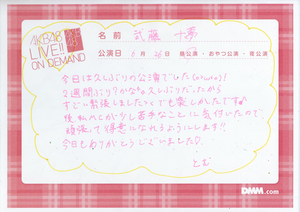 AKB48 LIVE!! ON DEMAND
名前 武藤 十夢
公演日 月26日 昼公演・おやつ公演・夜公演
今日は久しぶりの公演でした
2週間ぶりかな?久しぶりだったから
すごい緊張しましたとても楽しかったですが
後転がしかり苦手なことに気付いたので、
頑張って得意になれるようにします!!
今日もありがとうございました
とむ
DMM.com